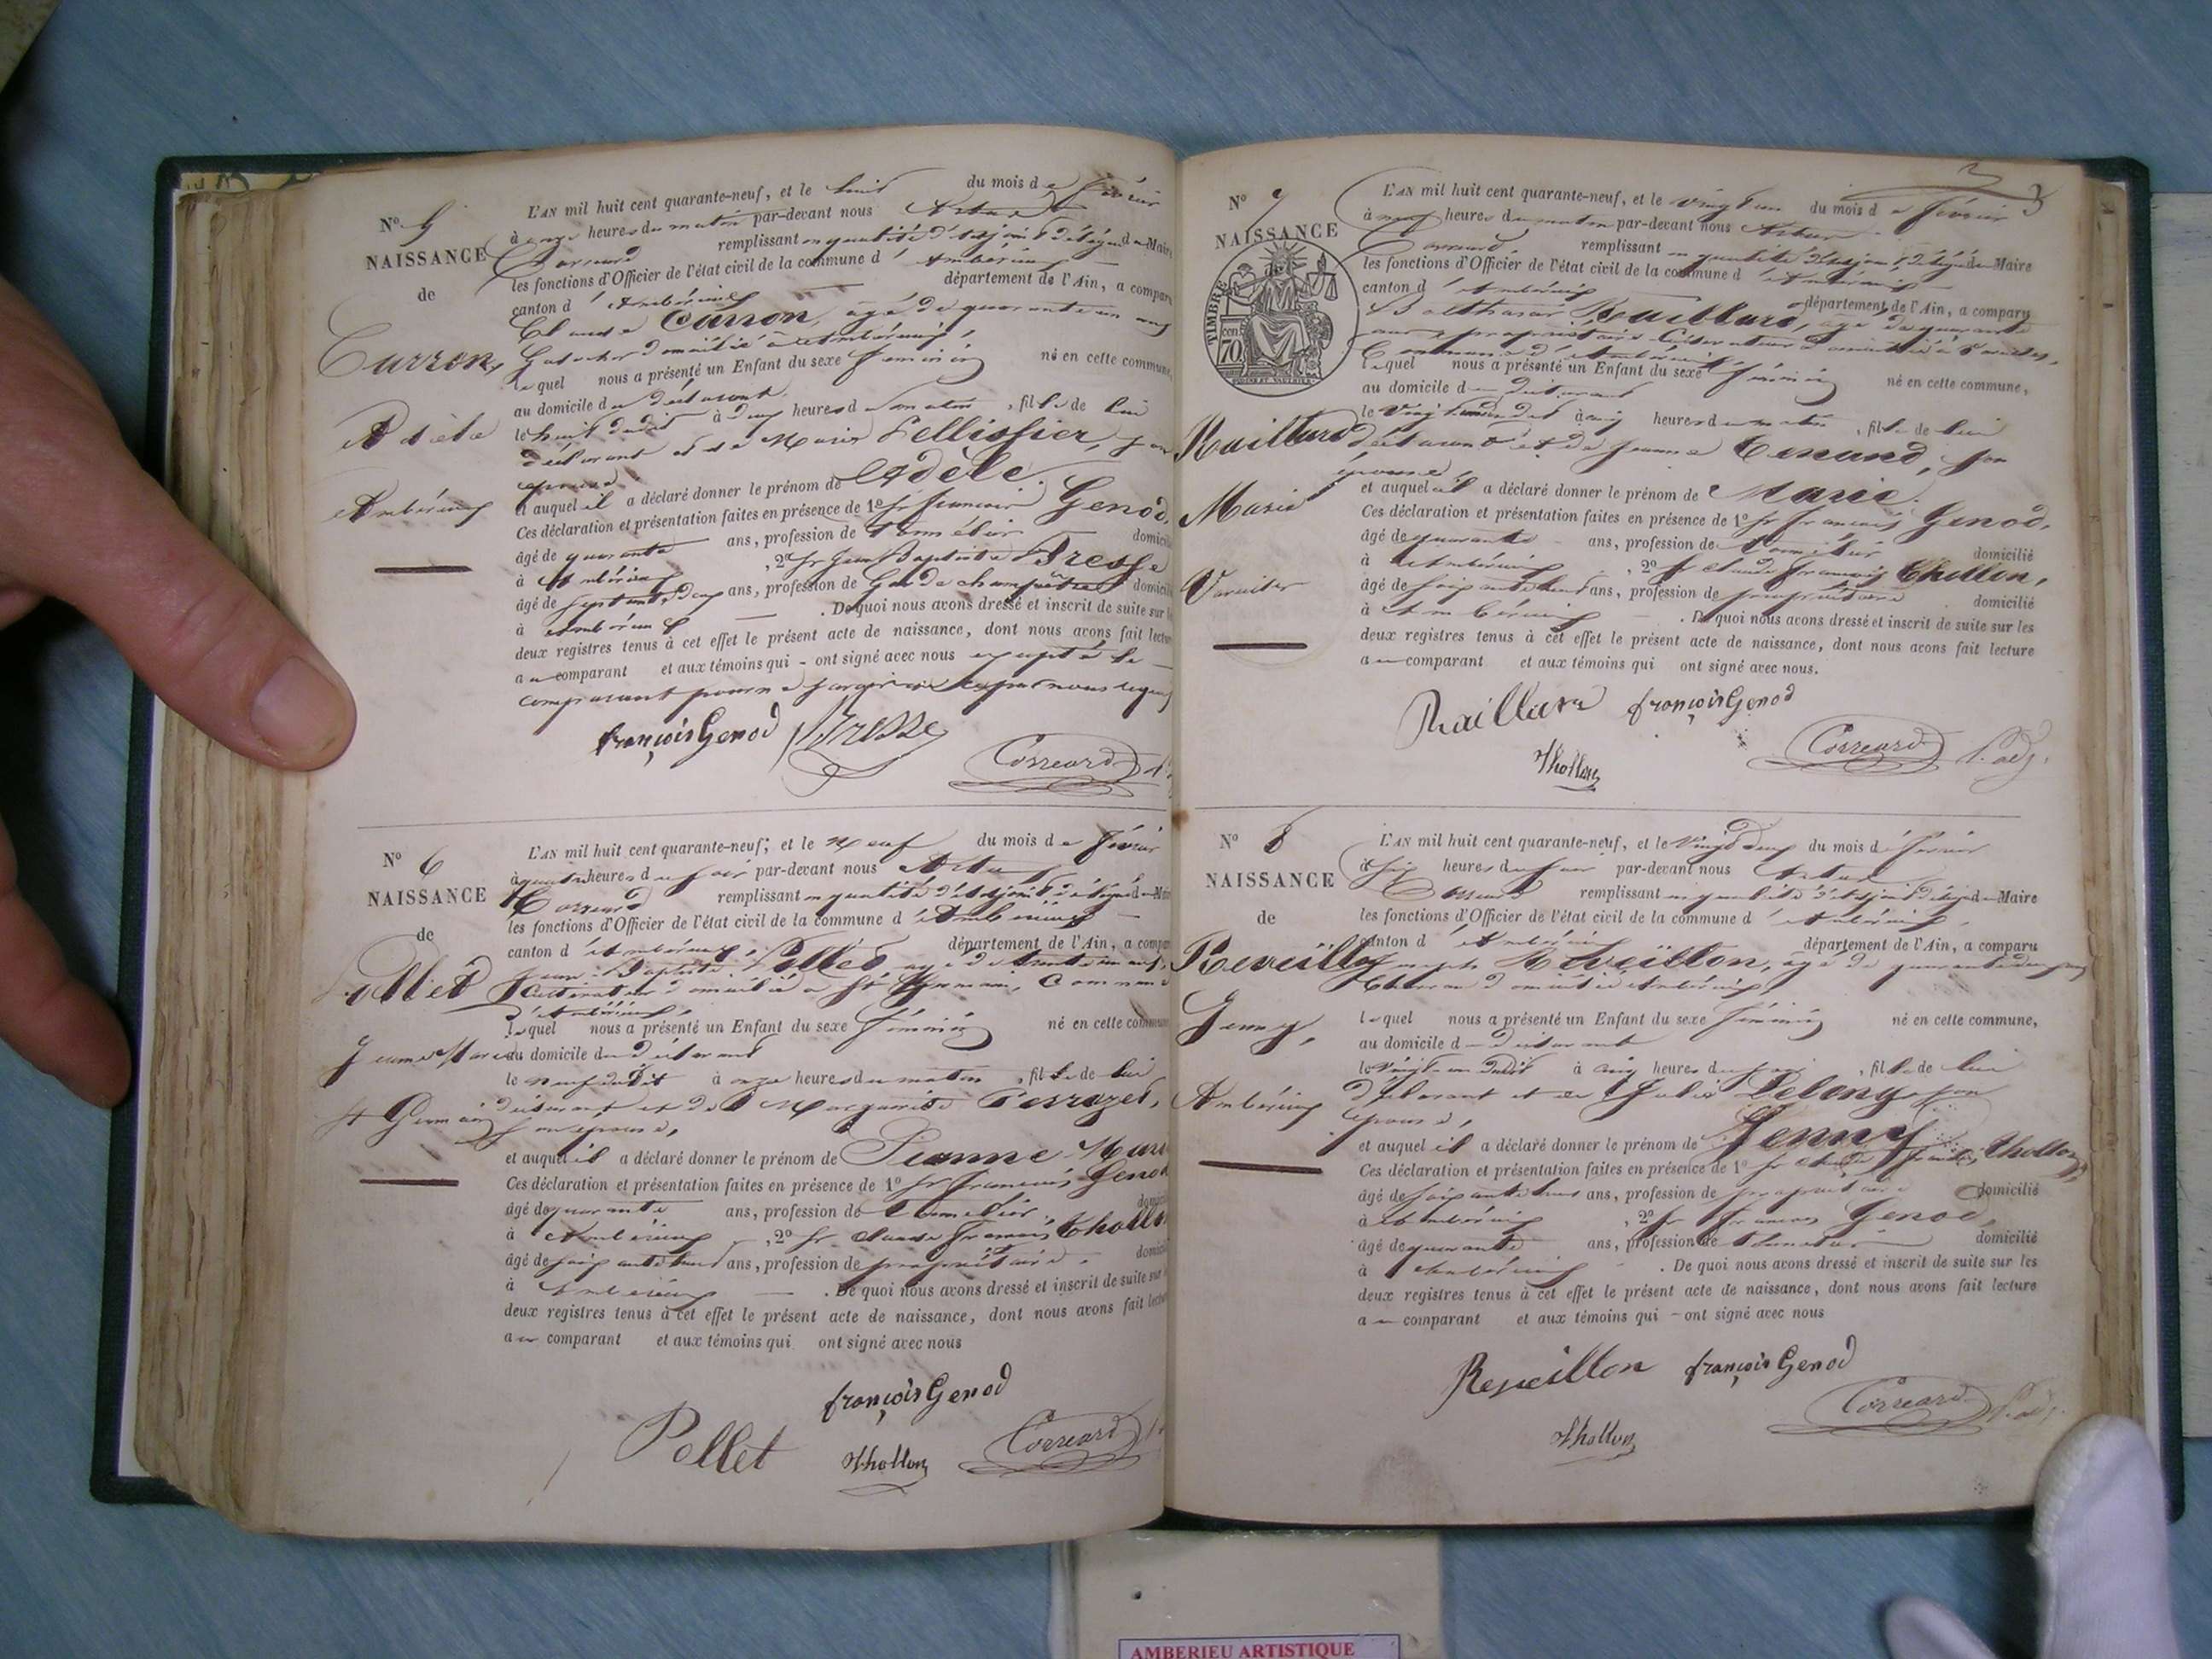 No 5
NAISSANCE
de
Curron,
Adèle
Ambérieux
L'AN mil huit cent quarante-neuf, et le huit du mois de février
à onze heures du matin par-devant nous Artur
Correard remplissant en qualité d'adjoint délégué du Maire
les fonctions d'Officier de l'état civil de la commune d'Ambérieux
canton d'Ambérieux département de l'Ain, a comparu
Claude Curron, âgé de quarante un ans
domicilié à Ambérieux,
lequel nous a présenté un Enfant du sexe féminin né en cette commune,
au domicile du déclarant
le huit dudit à deux heures du matin, fille de lui
déclarant et de Marie Pellissier, son
épouse.
et auquel il a déclaré donner le prénom de Adèle.
Ces déclaration et présentation faites en présence de 1º Sr françois Genod,
âgé de quarante ans, profession de tonnelier domicilié
à Ambérieux, 2º Sr Jean Baptiste Tresse
âgé de septante deux ans, profession de Garde champêtre domicilié
à Ambérieux. De quoi nous avons dressé et inscrit de suite sur les
deux registres tenus à cet effet le présent acte de naissance, dont nous avons fait lecture
au comparant et aux témoins qui ont signé avec nous excepté le
comparant pour ne savoir
françois Genod Tresse Correard
No 6
NAISSANCE
de
Pollet
Jeanne Marie
St Germain
L'AN mil huit cent quarante-neuf, et le neuf du mois de février
à quatre heures du soir par-devant nous Artur
Correard remplissant en qualité d'adjoint délégué du Maire
les fonctions d'Officier de l'état civil de la commune d'Ambérieux
canton d'Ambérieux, département de l'Ain, a comparu
Jean-Baptiste Pollet âgé de trente un ans,
cultivateur domicilié à St Germain, Commune
d'Ambérieux,
lequel nous a présenté un Enfant du sexe féminin né en cette commune
au domicile du déclarant
le neuf dudit à onze heures du matin, fille de lui
déclarant et de Marguerite Perrozet,
son épouse,
et auquel il a déclaré donner le prénom de Jeanne Marie
Ces déclaration et présentation faites en présence de 1º Sr françois Genod
âgé de quarante ans, profession de tonnelier, domicilié
à Ambérieux, 2º Sr Claude françois Thollon
âgé de soixante huit ans, profession de propriétaire. domicilié
à Ambérieux. De quoi nous avons dressé et inscrit de suite sur les
deux registres tenus à cet effet le présent acte de naissance, dont nous avons fait lecture
au comparant et aux témoins qui ont signé avec nous
françois Genod
Pollet Thollon Correard
3
No 7
NAISSANCE
TIMBRE
70
Raillard
Marie
Vareilles
L'AN mil huit cent quarante-neuf, et le vingt un du mois de février
à neuf heures du matin par-devant nous Artur
Correard, remplissant en qualité d'adjoint délégué du Maire
les fonctions d'Officier de l'état civil de la commune d'Ambérieux
canton d'Ambérieux département de l'Ain, a comparu
Balthazar Raillard, âgé de quarante
ans propriétaire cultivateur domicilié à Vareilles,
Commune d'Ambérieux,
lequel nous a présenté un Enfant du sexe féminin né en cette commune,
au domicile du déclarant
le vingt un dudit à cinq heures du matin, fille de lui
déclarant et de Jeanne Tenand, son
épouse,
et auquel il a déclaré donner le prénom de Marie.
Ces déclaration et présentation faites en présence de 1º Sr françois Genod,
âgé de quarante ans, profession de tonnelier domicilié
à Ambérieux, 2º Sr Claude françois Thollon,
âgé de soixante huit ans, profession de propriétaire domicilié
à Ambérieux. De quoi nous avons dressé et inscrit de suite sur les
deux registres tenus à cet effet le présent acte de naissance, dont nous avons fait lecture
au comparant et aux témoins qui ont signé avec nous.
Raillard françois Genod
Thollon Correard l'adj.
No 8
NAISSANCE
de
Reveillon
Jenny,
Ambérieux
L'AN mil huit cent quarante-neuf, et le vingt deux du mois de février
à six heures du soir par-devant nous Artur
Correard remplissant en qualité d'adjoint délégué du Maire
les fonctions d'Officier de l'état civil de la commune d'Ambérieux,
canton d'Ambérieux département de l'Ain, a comparu
Joseph Reveillon, âgé de quarante deux ans
domicilié à Ambérieux,
lequel nous a présenté un Enfant du sexe féminin né en cette commune,
au domicile du déclarant
le vingt un dudit à cinq heures du soir, fille de lui
déclarant et de Julie Delonge son
épouse,
et auquel il a déclaré donner le prénom de Jenny
Ces déclaration et présentation faites en présence de 1º Sr Claude françois Thollon,
âgé de soixante huit ans, profession de propriétaire domicilié
à Ambérieux, 2º Sr françois Genod,
âgé de quarante ans, profession de tonnelier domicilié
à Ambérieux. De quoi nous avons dressé et inscrit de suite sur les
deux registres tenus à cet effet le présent acte de naissance, dont nous avons fait lecture
au comparant et aux témoins qui ont signé avec nous
Reveillon françois Genod
Thollon Correard l'adj.
AMBERIEU ARTISTIQUE